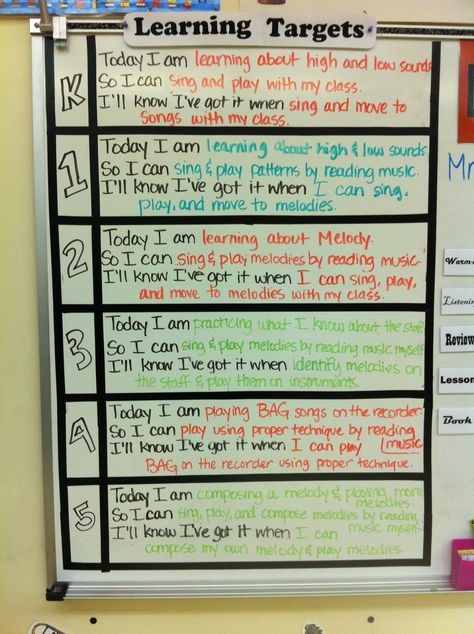 Learning Targets
K
Today I am learning about high and low sounds
So I can sing and play with my class.
I'll know I've got it when sing and move to
songs with my class.
1
Today I am learning about high & low sounds
So I can sing & play patterns by reading music.
I'll know I've got it when I can sing,
play, and move to melodies.
2
Today I am learning about Melody.
So I can sing & play melodies by reading music.
I'll know I've got it when I can sing, play,
and move to melodies with my class.
3
Today I am practicing what I know about the staff
So I can sing & play melodies by reading music myself
I'll know I've got it when identify melodies on
the staff & play them on instruments.
4
Today I am playing BAG songs on the recorder.
So I can play using proper technique by reading
music
I'll know I've got it when I can play
BAG on the recorder using proper technique.
5
Today I am composing a melody & playing more
melodies.
So I can sing, play, and compose melodies by reading
music myself
I'll know I've got it when I can
compose my own melody & play melodies.
Warm-
Listening
Review
Lesson
Book